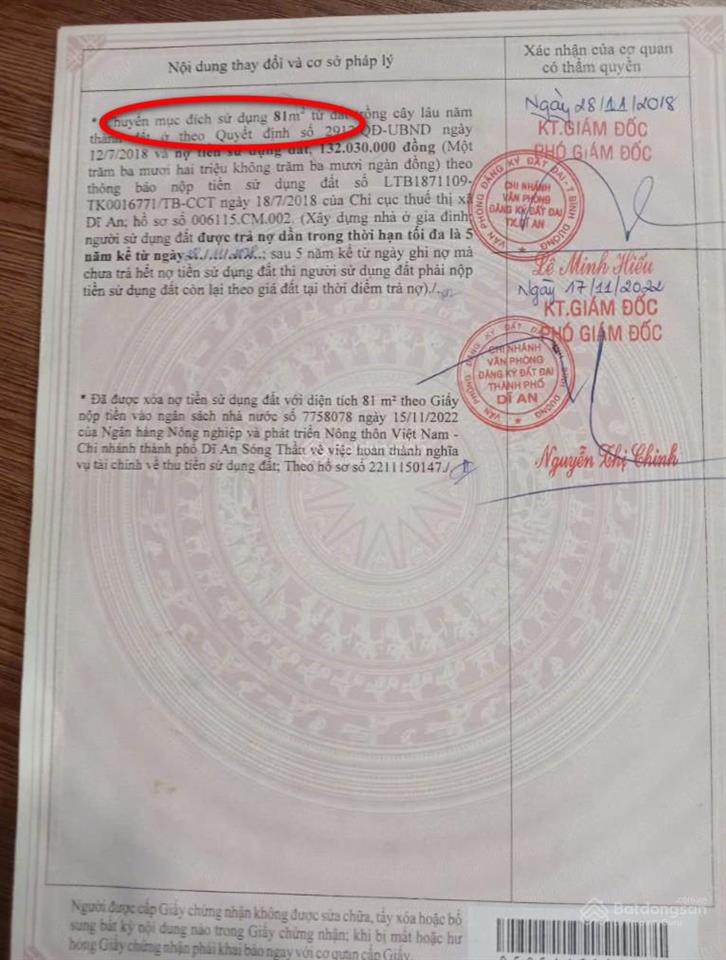 Nội dung thay đổi và cơ sở pháp lý
Xác nhận của cơ quan
có thẩm quyền
* Chuyển mục đích sử dụng 81m² từ đất trồng cây lâu năm
thành đất ở theo Quyết định số QĐ-UBND ngày
12/7/2018 và nợ tiền sử dụng đất; 132.030.000 đồng (Một
trăm ba mươi hai triệu không trăm ba mươi ngàn đồng) theo
thông báo nộp tiền sử dụng đất số LTB1871109-
TK0016771/TB-CCT ngày 18/7/2018 của Chi cục thuế thị xã
Dĩ An; hồ sơ số 006115.CM.002. (Xây dựng nhà ở gia đình
người sử dụng đất được trả nợ dần trong thời hạn tối đa là 5
năm kể từ ngày ; sau 5 năm kể từ ngày ghi nợ mà
chưa trả hết nợ tiền sử dụng đất thì người sử dụng đất phải nộp
tiền sử dụng đất còn lại theo giá đất tại thời điểm trả nợ)./.
Ngày 28/11/2018
KT.GIÁM ĐỐC
PHÓ GIÁM ĐỐC
VĂN PHÒNG ĐĂNG KÝ ĐẤT ĐAI - T.BÌNH DƯƠNG
CHI NHÁNH
VĂN PHÒNG
ĐĂNG KÝ ĐẤT ĐAI
TX.DĨ AN
Lê Minh Hiếu
Ngày 17/11/2022
KT.GIÁM ĐỐC
PHÓ GIÁM ĐỐC
CHI NHÁNH
VĂN PHÒNG
ĐĂNG KÝ ĐẤT ĐAI
THÀNH PHỐ
DĨ AN
Nguyễn Thị Chinh
* Đã được xóa nợ tiền sử dụng đất với diện tích 81 m² theo Giấy
nộp tiền vào ngân sách nhà nước số 7758078 ngày 15/11/2022
của Ngân hàng Nông nghiệp và phát triển Nông thôn Việt Nam -
Chi nhánh thành phố Dĩ An Sóng Thần về việc hoàn thành nghĩa
vụ tài chính về thu tiền sử dụng đất; Theo hồ sơ số 2211150147./.
Người được cấp Giấy chứng nhận không được sửa chữa, tẩy xóa hoặc bổ
sung bất kỳ nội dung nào trong Giấy chứng nhận; khi bị mất hoặc hư
hỏng Giấy chứng nhận phải khai báo ngay với cơ quan cấp Giấy.
Batdongsan